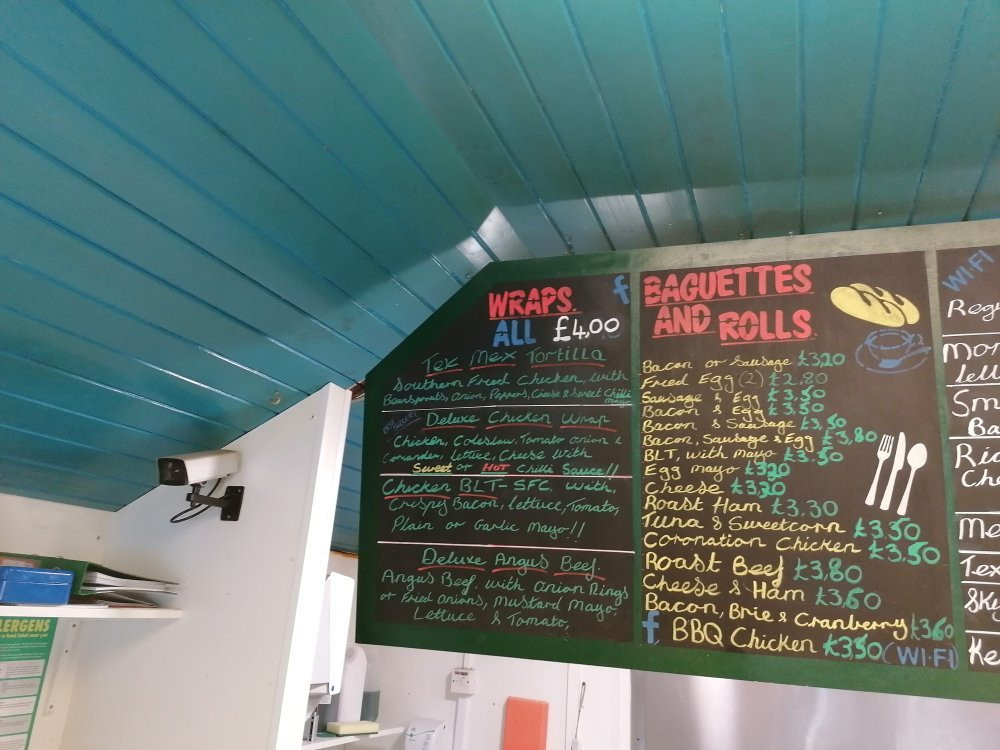 WRAPS.
ALL £4,00
Tex Mex Tortilla
Southern Fried Chicken, with
Beansprouts, onion, Peppers, Cheese & Sweet Chilli
mayo
Deluxe Chicken Wrap
Chicken, Coleslaw, Tomato onion &
Coriander, lettuce, Cheese with
Sweet or HOT Chilli Sauce!!
Chicken BLT-SFC, with,
Crispy Bacon, lettuce, Tomato,
Plain or Garlic Mayo!!
Deluxe Angus Beef.
Angus Beef, with onion Rings
or Fried onions, Mustard Mayo
Lettuce & Tomato,
f
BAGUETTES
AND ROLLS.
Bacon or Sausage £3,20
Fried Egg (2) £2.80
Sausage & Egg £3.50
Bacon & Egg £3.50
Bacon & Sausage £3,50
Bacon, Sausage & Egg £3,80
BLT, with mayo £3.50
Egg mayo £3,20
Cheese £3,20
Roast Ham £3.30
Tuna & Sweetcorn £3.50
Coronation Chicken £3.50
Roast Beef £3,80
Cheese & Ham £3,60
Bacon, Brie & Cranberry £3,60
f BBQ Chicken £3,50 (WI-FI)
WI-FI
Reg
Mor
lell
Sm
Ba
Ric
Che
Me
Tex
Sky
Ke
LERGENS